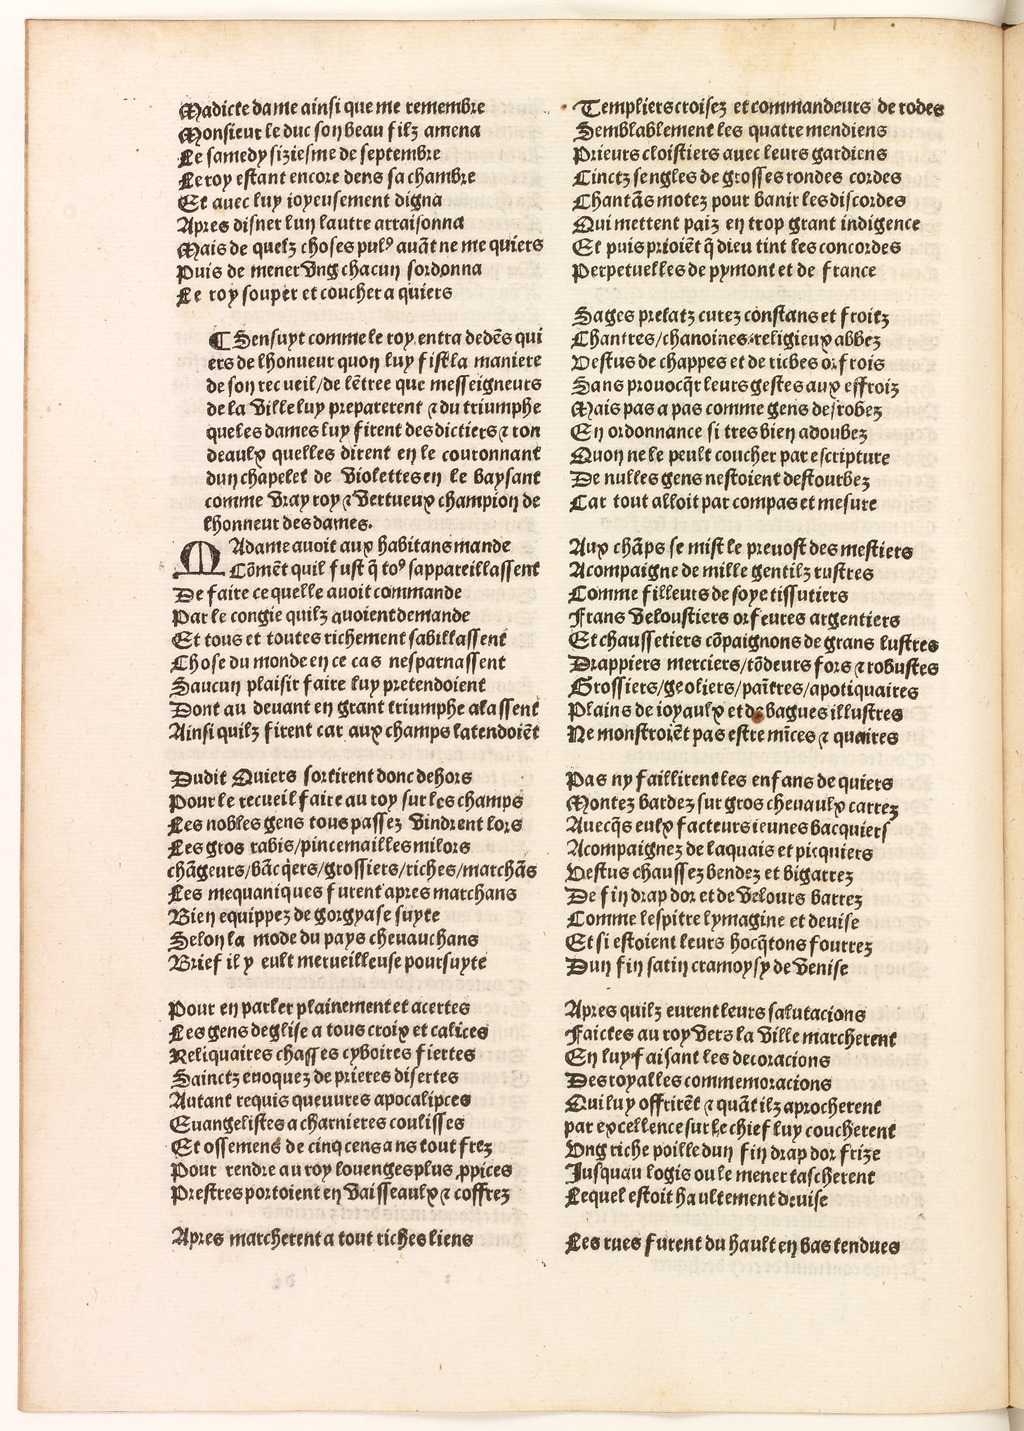 Madicte dame ainsi que me remembre
Monsieur le duc son beau filz amena
Le samedy siziesme de septembre
Le roy estant encore dens sa chambre
Et auec luy ioyeusement digna
Apres disner lun lautre arraisonna
Mais de quelz choses pulꝰ auãt ne me quiers
Puis de mener vng chacun sordonna
Le roy souper et coucher a quiers
¶ Sensuyt comme le roy entra dedẽs qui
ers de lhonneur quon luy fist la maniere
de son recueil/de lẽtree que messeigneurs
de la ville luy preparerent ⁊ du triumphe
que les dames luy firent des dictiers ⁊ ron
deaulx quelles dirent en le couronnant
dun chapelet de violettes en le baysant
comme vray roy ⁊ vertueux champion de
lhonneur des dames.
MAdame auoit aux habitans mande
Cõmẽt quil fust q̃ toꝰ sappareillassent
De faire ce quelle auoit commande
Par le congie quilz auoient demande
Et tous et toutes richement sabillassent
Chose du monde en ce cas nesparnassent
Saucun plaisir faire luy pretendoient
Dont au deuant en grant triumphe alassent
Ainsi quilz firent car aux champs latendoiẽt
Dudit Quiers sortirent donc dehors
Pour le recueil faire au roy sur les champs
Les nobles gens tous passez vindrent lors
Les gros rabis/pincemailles milors
chãgeurs/bãcq̃ers/grossiers/riches/marchãs
Les mequaniques furent apres marchans
Bien equippez de gorgyase suyte
Selon la mode du pays cheuauchans
Brief il y eult merueilleuse poursuyte
Pour en parler plainement et acertes
Les gens deglise a tous croix et calices
Reliquaires chasses cyboires fiertes
Sainctz euoquez de prieres disertes
Autant requis queuures apocalipces
Euangelistes a charnieres coulisses
Et ossemens de cinq cens ans tout frez
Pour rendre au roy louenges plus ꝓpices
Prestres portoient en vaisseaulx ⁊ coffrez
Apres marcherent a tout riches liens
Templiers croisez et commandeurs de rodes
Semblablement les quatre mendiens
Prieurs cloistiers auec leurs gardiens
Cinctz sengles de grosses rondes cordes
Chantãs motez pour banir les discordes
Qui mettent paiz en trop grant indigence
Et puis prioiẽt q̃ dieu tint les concordes
Perpetuelles de pymont et de france
Sages prelatz curez constans et froitz
Chantres/chanoines/religieux abbez
Vestus de chappes et de riches orfrois
Sans prouocq̃r leurs gestes aux effroiz
Mais pas a pas comme gens desrobez
En ordonnance si tres bien adoubez
Quon ne le peult coucher par escripture
De nulles gens nestoient destourbez
Car tout alloit par compas et mesure
Aux chãps se mist le preuost des mestiers
Acompaigne de mille gentilz rustres
Comme filleurs de soye tissutiers
Frans veloustiers orfeures argentiers
Et chaussetiers cõpaignons de grans lustres
Drappiers merciers/tõdeurs fors ⁊ robustes
Grossiers/geoliers/paĩtres/apotiquaires
Plains de ioyaulx et de bagues illustres
Ne monstroiẽt pas estre mĩces ⁊ quaires
Pas ny faillirent les enfans de quiers
Montez bardez sur gros cheuaulx carrez
Auecq̃s eulx facteurs ieunes bacquiers
Acompaignez de laquais et picquiers
Vestus chaussez bendez et bigarrez
De fin drap dor et de velours barrez
Comme lespitre lymagine et deuise
Et si estoient leurs hocq̃tons fourrez
Dun fin satin cramoysy de Venise
Apres quilz eurent leurs salutacions
Faictes au roy vers la ville marcherent
En luy faisant les decoracions
Des royalles commemoracions
Qui luy offrirẽt ⁊ quãt ilz aprocherent
par excellence sur le chief luy coucherent
Vng riche poille dun fin drap dor frize
Jusquau logis ou le mener tascherent
Lequel estoit haultement deuise
Les rues furent du hault en bas tendues